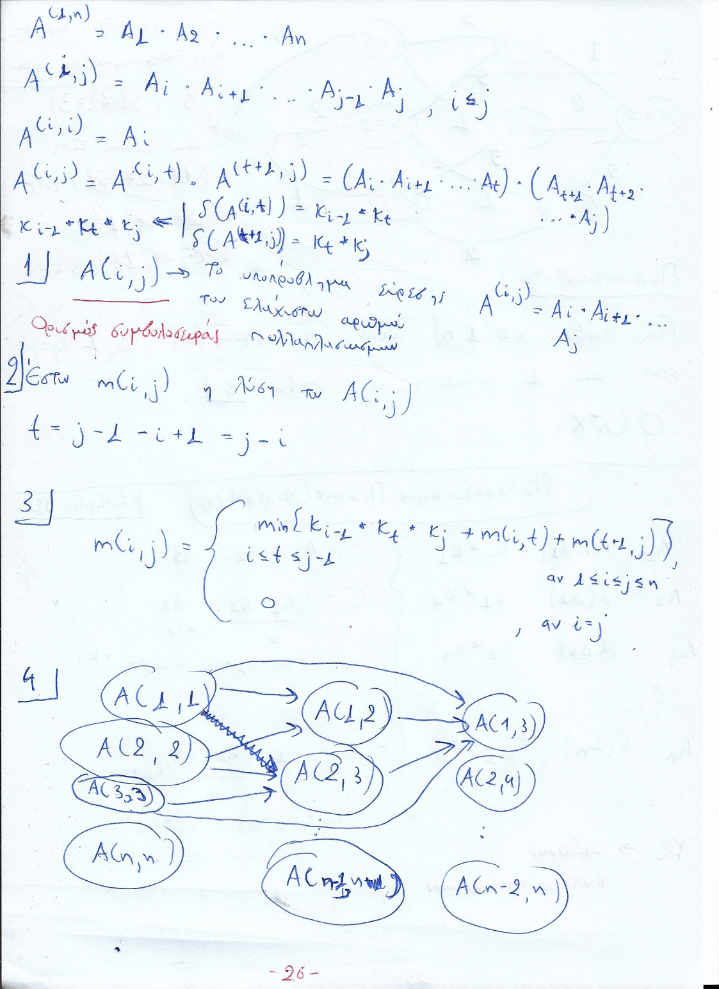 A^(1,n) = A1 · A2 · ... · An
A^(i,j) = Ai · Ai+1 · ... · Aj-1 · Aj , i ≤ j
A^(i,i) = Ai
A^(i,j) = A^(i,t) · A^(t+1,j) = (Ai · Ai+1 · ... · At) · (At+1 · At+2 ·
... · Aj)
Ki-1 * Kt * Kj ⇐ | δ(A^(i,t)) = Ki-1 * Kt
δ(A^(t+1,j)) = Kt * Kj
1] A(i,j) → Το υποπρόβλημα εύρεσης
του ελάχιστου αριθμού
πολλαπλασιασμών
A^(i,j) = Ai · Ai+1 · ...
Aj
Ορισμός συμβολοσειράς
2] Έστω m(i,j) η λύση του A(i,j)
t = j-1 - i+1 = j-i
3]
m(i,j) = { min{Ki-1 * Kt * Kj + m(i,t) + m(t+1,j)},
i ≤ t ≤ j-1
αν 1≤i≤j≤n
0
, αν i=j
4]
A(1,1) A(1,2) A(1,3)
A(2,2) A(2,3) A(2,4)
A(3,3)
⋮ ⋮
A(n,n) A(n-1,n) A(n-2,n)
-26-